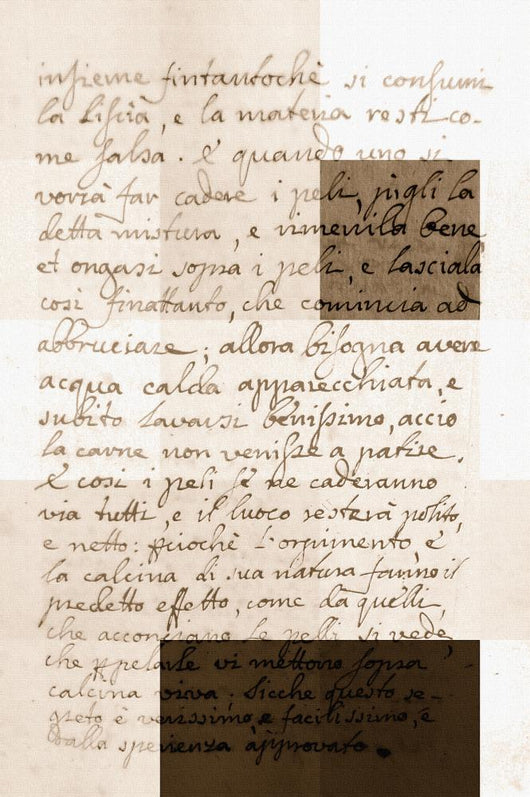 insieme fintantochè si consumi
la lisià, e la materia resti co-
me salsa. E quando uno si
vorrà far cadere i peli, pigli la
detta mistura, e rimenila bene
et ongasi sopra i peli, e lasciala
così finattanto, che comincia ad
abbruciare; allora bisogna avere
acqua calda apparecchiata, e
subito lavarsi benissimo, acciò
la carne non venisse a patire.
E così i peli se ne caderanno
via tutti, e il luoco resterà polito,
e netto: pciochè l'orpimento, e
la calcina di sua natura fanno il
predetto effetto, come da quelli,
che acconciano le pelli si vede,
che p pelarle vi mettono sopra
calcina viva. Sicche questo se-
greto è verissimo, e facilissimo, e
dalla sperienza approvato.